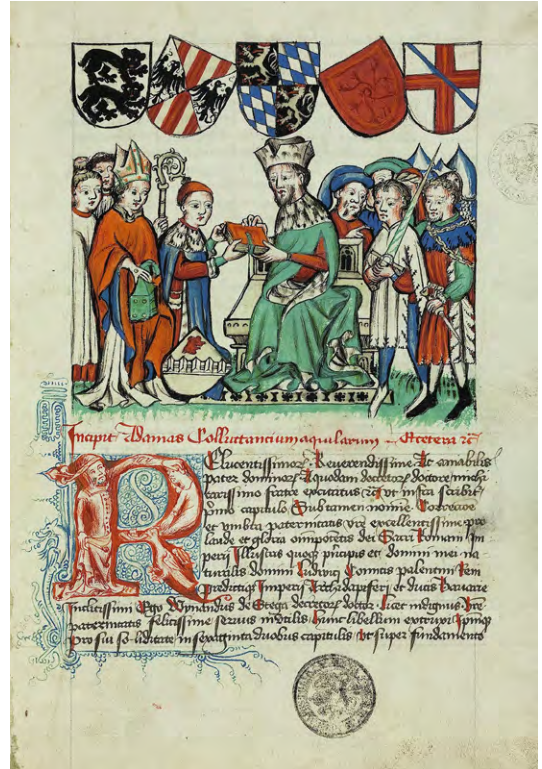 Incipit Adamas Colluctancium aquilarum Et cetera
Relucentissimor Reuerendissime Ac amabilis
pater dominor A quodam decretor doctore michi
carissimo fratre excitatus vt infra scribit
capitulo Sub tamen nomine Correccione
et vmbra paternitatis vre excellentissime pro
laude et gloria dei Sacri Romani Im
perij Illustris quoque pncipis et domini mei na
turalis domini ludwici Comitis palentini Reni
predictiq Imperij Archidapiferi et ducis bauarie
Inclitissimi Ego Wynandus de Stega decretor doctor licet indignus
paternitatis felicissime seruus inutilis hunc libellum extruxi Ipmq
pro sui soliditate in septuaginta duobus capitulis vt super fundamento